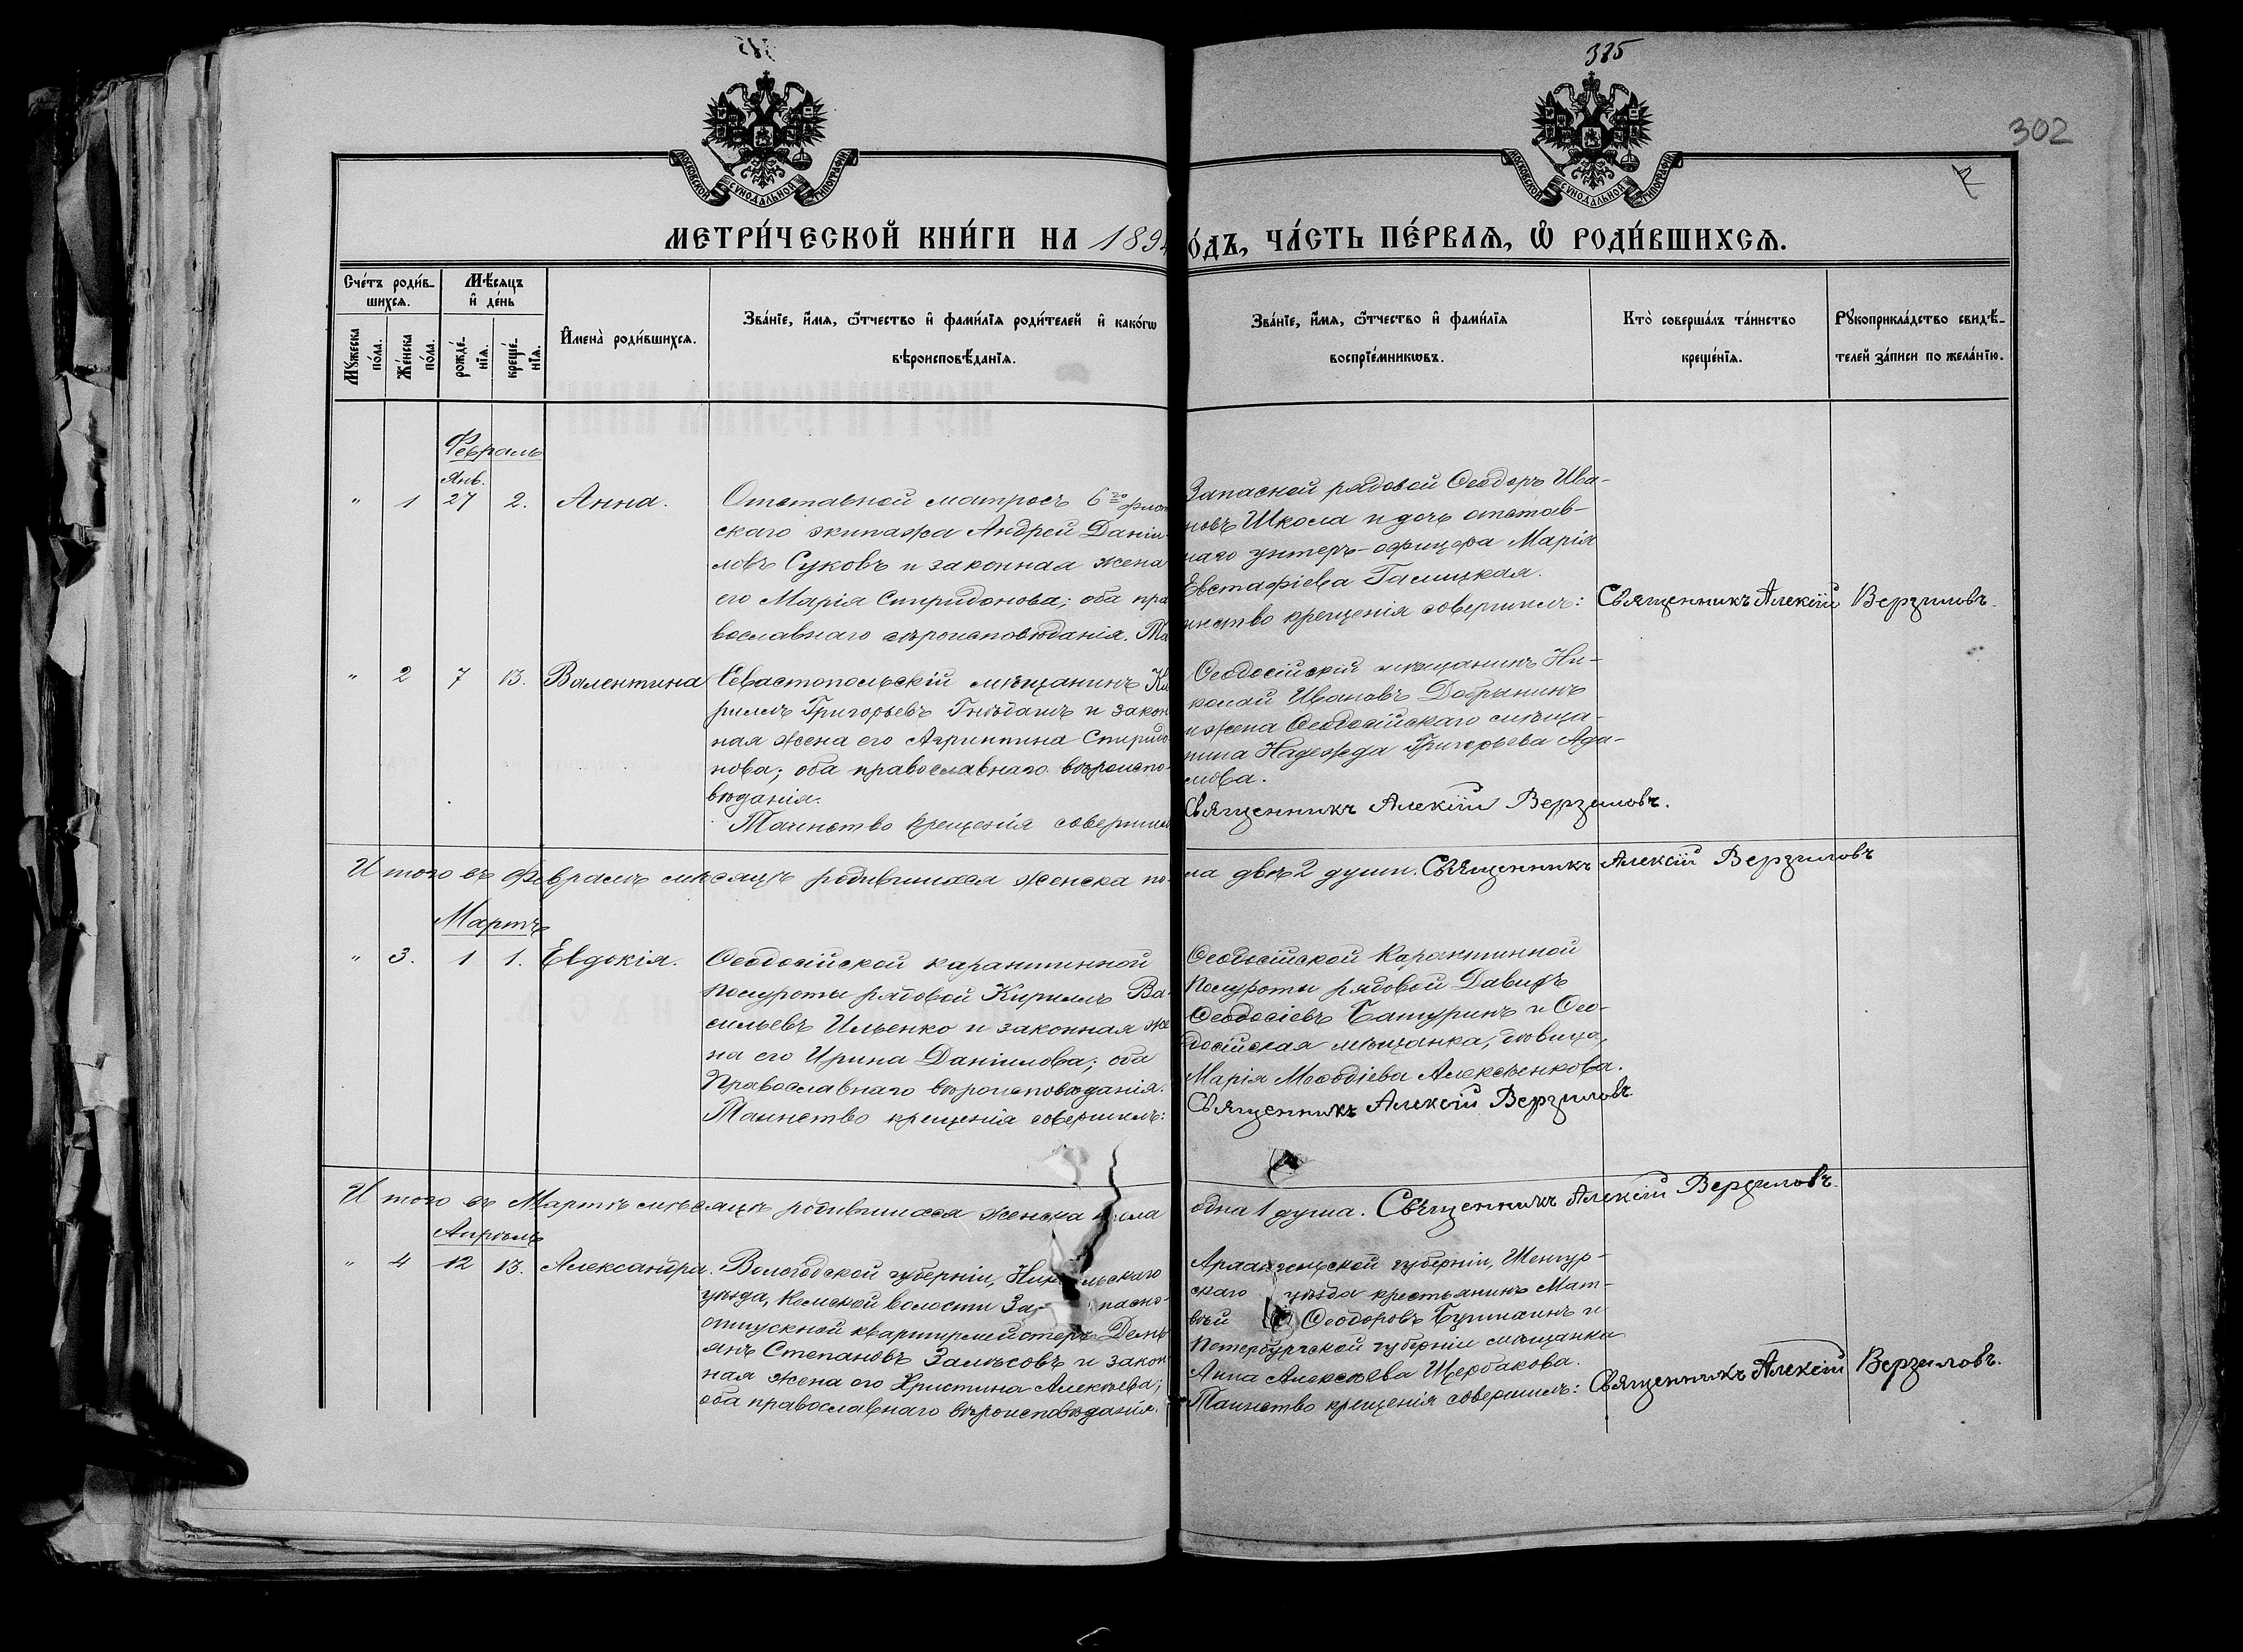 375
302
МОСКОВСКОЙ СѴНОДАЛЬНОЙ ТИПОГРАФІИ
МОСКОВСКОЙ СѴНОДАЛЬНОЙ ТИПОГРАФІИ
МЕТРИ́ЧЕСКОЙ КНИ́ГИ НА 1894
О́ДЪ, ЧА́СТЬ ПЕ́РВАѦ, Ѡ҆ РОДИ́ВШИХСѦ.
Сче́тъ роди́в-
шихсѧ.
Мѣ́сѧцъ
и҆ де́нь
Мꙋ́жеска по́ла.
Же́нска по́ла.
рожде́-
нїѧ.
креще́-
нїѧ.
И҆мена̀ роди́вшихсѧ.
Зва́нїе, и҆́мѧ, ѻ҆́тчество и҆ фами́лїѧ роди́телей и҆ како́гѡ
вѣроисповѣ́данїѧ.
Зва́нїе, и҆́мѧ, ѻ҆́тчество и҆ фами́лїѧ
воспрїе́мникѡвъ.
Кто̀ соверша́лъ та́инство
креще́нїѧ.
Рꙋкоприкла́дство свидѣ́-
телей за́писи по жела́нїю.
Февраль
Янв.
" 1 27 2. Анна.
Отставной матросъ 6го флот
скаго экипажа Андрей Данiи-
ловъ Суковъ и законная жена
его Марія Спиридонова; оба пра
вославнаго вѣроисповѣданія. Та
Запасной рядовой Ѳеодоръ Ива-
новъ Школа и дочь отстав-
наго унтеръ-офицера Марія
Евстафіева Галицкая.
инство крещенія совершилъ: Священникъ Алексій Верзиловъ.
" 2 7 13. Валентина
Севастопольскій мѣщанинъ Ки
риллъ Григорьевъ Гнѣдашъ и закон
ная жена его Агриппина Спиридо
нова; оба православнаго вѣроиспо-
вѣданія.
Таинство крещенія совершил
Ѳеодосійскій мѣщанинъ Ни-
колай Ивановъ Добрынинъ
и жена Ѳеодосійскаго мѣща-
нина Надежда Григорьева Ада-
мова.
Священникъ Алексій Верзиловъ.
Итого въ Февралѣ мѣсяцѣ родившихся женска по-
ла двѣ 2 души. Священникъ Алексій Верзиловъ
Мартъ
" 3. 1 1. Евдокія.
Ѳеодосійской карантинной
полуроты рядовой Кириллъ Ва-
сильевъ Ильенко и законная же
на его Ирина Даніилова; оба
Православнаго вѣроисповѣданія.
Таинство крещенія совершилъ:
Ѳеодосійской Карантинной
полуроты рядовой Давидъ
Ѳеодосіевъ Батуринъ и Ѳео-
досійская мѣщанка, дѣвица,
Марія Меѳодіева Алексѣенкова.
Священникъ Алексій Верзиловъ
Итого въ Мартѣ мѣсяцѣ родившихся женска пола
одна 1 душа. Священникъ Алексій Верзиловъ.
Апрѣль
" 4 12 13. Александра.
Вологодской губерніи, Никольскаго
уѣзда, Кемской волости За пасно-
отпускной квартирмейстеръ Демь
янъ Степановъ Замѣсовъ и закон
ная жена его Христина Алексѣева;
оба православнаго вѣроисповѣданія.
Архангельской губерніи, Шенкур-
скаго уѣзда крестьянинъ Мат-
вѣй Ѳеодоровъ и
Петербургской губерніи мѣщанка
Анна Алексѣева Щербакова.
Таинство крещенія совершилъ: Священникъ Алексій Верзиловъ.